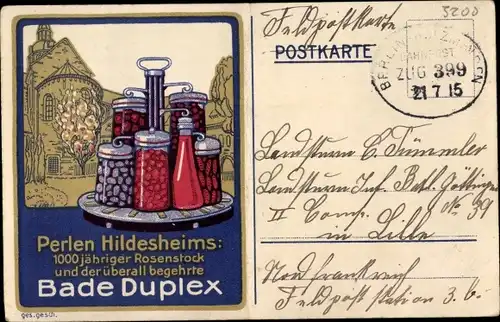 Perlen Hildesheims:
1000 jähriger Rosenstock
und der überall begehrte
Bade Duplex
ges.gesch.
5200
Feldpostkarte
POSTKARTE
BERLIN
BAHNPOST
ZUG 399
21 7 15
Landsturm C. Tümmler
Landsturm Inf. Batl. Götting
II Comp. No. 39
in Lille
Nord frankreich
Feldpost station 3. b.